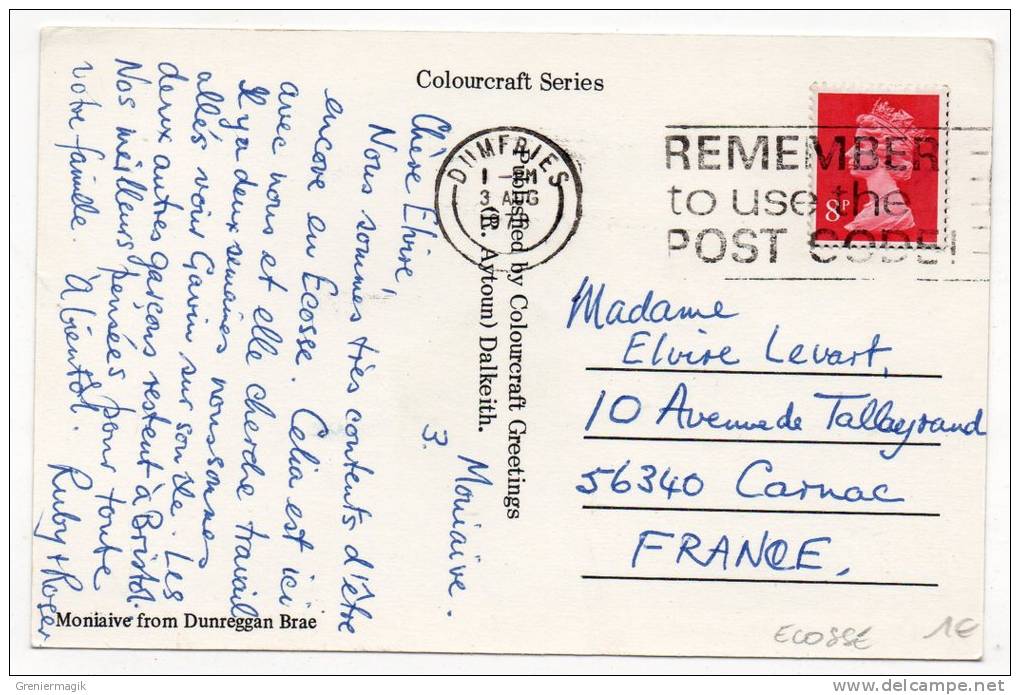 Colourcraft Series
DUMFRIES
3 AUG
REMEMBER
to use the
POST CODE!
8P
Published by Colourcraft Greetings
(R. Aytoun) Dalkeith.
Moniaive.
3.
Chère Elvire,
Nous sommes très contents d'être
encore en Ecosse. Celia est ici
avec nous et elle cherche travail
Il y a deux semaines nous sommes
allés voir Gavin sur son île. Les
deux autres garçons restent à Bristol.
Nos meilleurs pensées pour toute
votre famille. A bientôt. Ruby + Roger
Madame
Elvire Levart,
10 Avenue de Talleyrand
56340 Carnac
FRANCE,
Moniaive from Dunreggan Brae
ECOSSE 1€
Greniermagik
delcampe.net